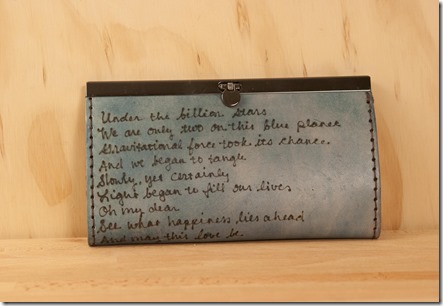 Under the billion stars
We are only two on this blue planet
Gravitational force took its chance.
And we began to tangle
Slowly, yet certainly
Light began to fill our lives
Oh my dear
See what happiness lies ahead
And may this love be.